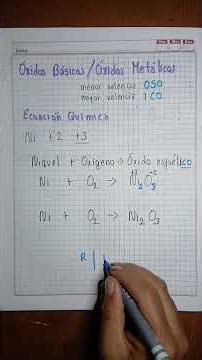 Óxidos Básicos/Óxidos Metálicos
menor valencia OSO
mayor valencia ICO
Ecuación Química
Ni +2 +3
Niquel + Oxígeno → Óxido niquélico
Ni + O2 → Ni2+3 O3-2
Ni + O2 → Ni2 O3
R